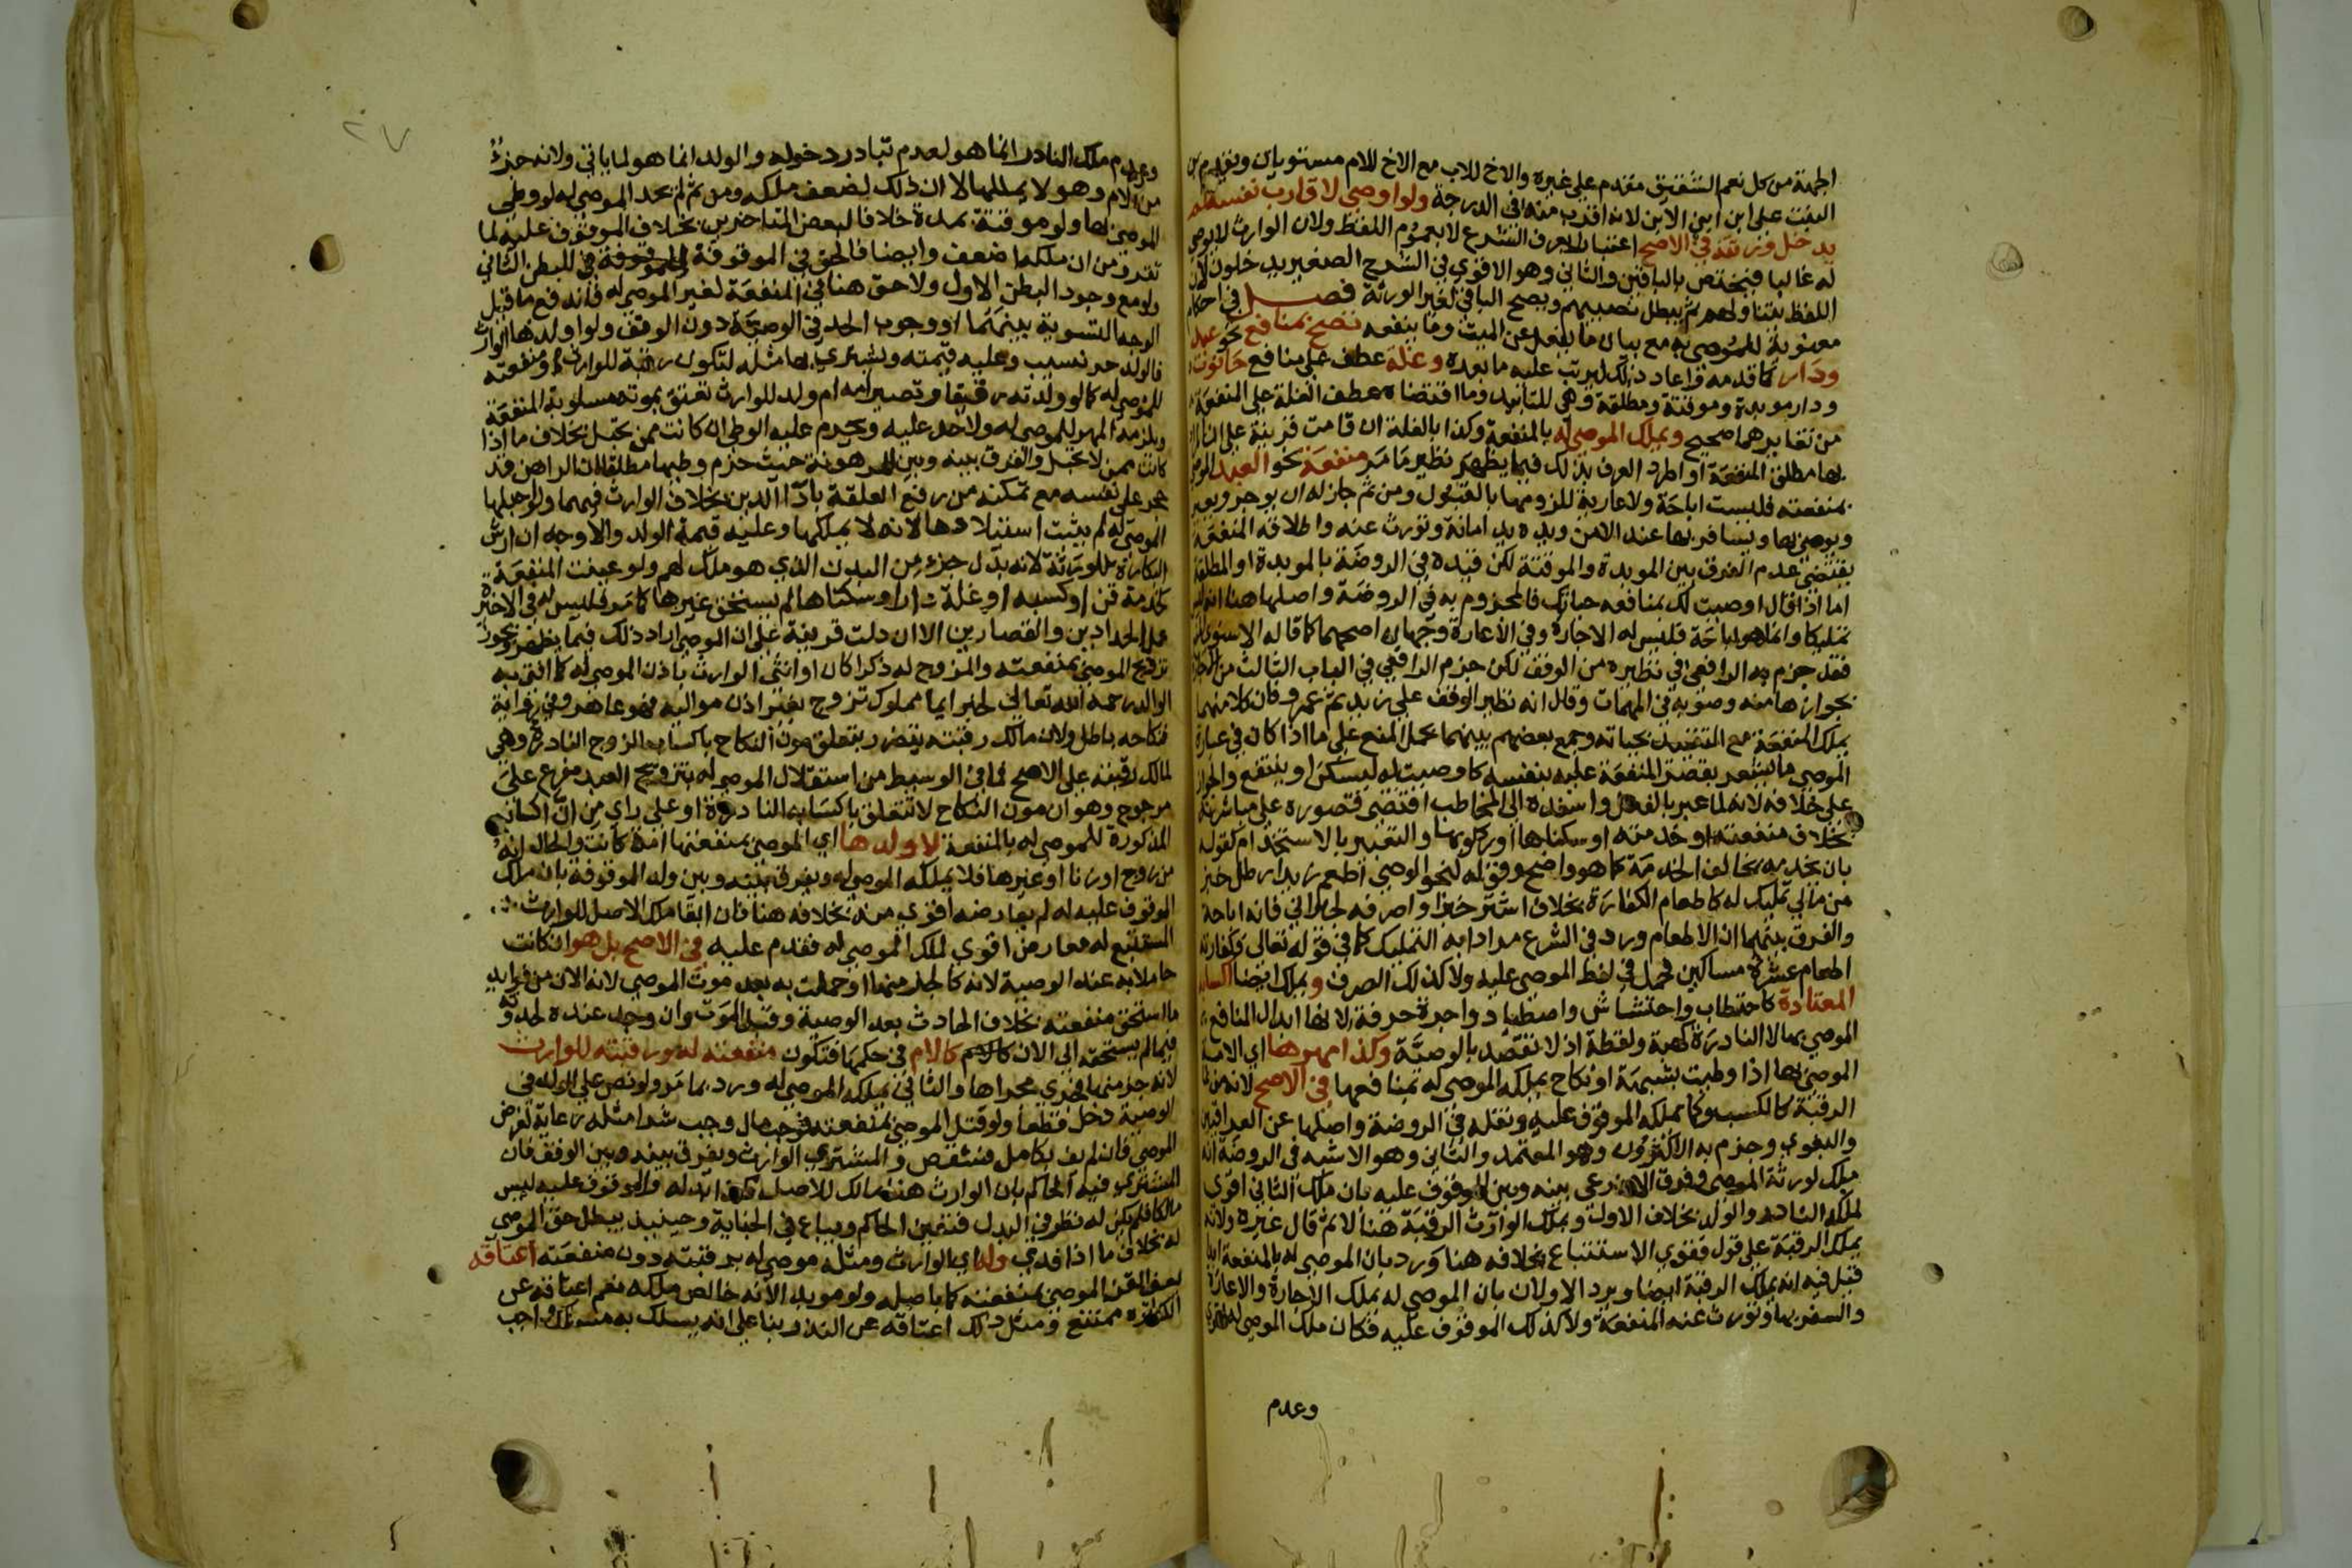 الجهة من كل نعم الشقيق مقدم على غيره والاخ للاب مع الاخ للام مستويان ويقدم ابن
البنت على ابن ابن الابن لانه اقرب منه في الدرجة ولو اوصى لاقارب نفسه لم
يدخل ورثته في الاصح اعتبارا بعرف الشرع لا بعموم اللفظ ولان الوارث لا يوصى
له غالبا فيختص بالباقين والثاني وهو الاقوي في الشرح الصغير يدخلون لان
اللفظ يتناولهم ثم يبطل نصيبهم ويصح الباقي لغير الورثة فصل في احكام
معنوية للموصى به مع بيان ما يفعل عن الميت وما ينفعه تصح بمنافع نحو عبد
ودار كما قدمه واعاد ذلك ليرتب عليه ما بعده وغلة عطف على منافع حانوت
ودار موبدة وموقتة ومطلقة وهي للتابيد وما اقتضاه عطف الغلة على المنفعة
من تغايرهما صحيح ويملك الموصى له بالمنفعة وكذا بالغلة ان قامت قرينة على ان المراد
بها مطلق المنفعة او اطرد العرف بذلك فيما يظهر نظير ما مر منفعة نحو العبد الموصى
بمنفعته فليست اباحة ولا عارية للزومها بالقبول ومن ثم جاز له ان يوجر ويعير
ويوصي بها ويسافر بها عند الامن ويده يد امانة وتورث عنه واطلاقه المنفعة
يقتضي عدم الفرق بين الموبدة والموقتة لكن قيده في الروضة بالموبدة او المطلقة
اما اذا قال اوصيت لك بمنافعه حياتك فالمجزوم به في الروضة واصلها هنا انه ليس
تمليكا وانما هو اباحة فليس له الاجارة وفي الاعارة وجهان اصحهما كما قاله الاسنوي
فقد جزم به الرافعي في نظيره من الوقف لكن جزم الرافعي في الباب الثالث من الاجارة
بجوازها منه وصوبه في المهمات وقال انه نظير الوقف على زيد ثم عمرو فان كلا منهما
يملك المنفعة مع التقييد بحياته وجمع بعضهم بينهما بحمل المنع على ما اذا كان في عبارة
الموصي ما يشعر بقصر المنفعة عليه بنفسه كاوصيت له ليسكن او ينتفع والجواز
على خلافه لانه لما عبر بالفعل واسنده الى المخاطب اقتضى قصوره على مباشرته
بخلاف منفعته او خدمته او سكناها او ركوبها والتعبير بالاستخدام كقوله
بان يخدمه بخالف الخدمة كما هو واضح وقوله لنحو الوصي اطعم زيدا رطل خبز
من مالي تمليك له كاطعام الكفارة بخلاف اشتر خبزا واصرفه لجيراني فانه اباحة
والفرق بينهما ان الاطعام ورد في الشرع مرادا به التمليك كما في قوله تعالى فكفارته
اطعام عشرة مساكين فحمل في لفظ الموصي عليه ولا كذلك الصرف ويملك ايضا اكسابه
المعتادة كاحتطاب واحتشاش واصطياد واجرة حرفة لانها ابدال المنافع
الموصي بها لا النادرة كهبة ولقطة اذ لا تقصد بالوصية وكذا مهرها اي الامة
الموصي بها اذا وطيت بشبهة او نكاح يملكه الموصى له بمنافعها في الاصح لانه من نماء
الرقبة كالكسب وكما يملكه الموقوف عليه ونقله في الروضة واصلها عن العراقيين
والبغوي وجزم به الاكثرون وهو المعتمد والثاني وهو الاشبه في الروضة انه
ملك لورثة الموصي وفرق الاذرعي بينه وبين الموقوف عليه بان ملك الثاني اقوى
لملكه النادر والولد بخلاف الاول ويملك الوارث الرقبة هنا لا ثم قال غيره ولانه
يملك الرقبة على قول فقوي الاستتباع بخلافه هنا ورد بان الموصى له بالمنفعة ابدا
قيل فيه انه يملك الرقبة ايضا ويرد الاولان بان الموصى له يملك الاجارة والاعارة
والسفر بها وتورث عنه المنفعة ولا كذلك الموقوف عليه فكان ملك الموصى له اقوى
وعدم
وعدم ملك النادر انما هو لعدم تبادر دخوله والولد انما هو لما ياتي ولانه جزء
من الام وهو لا يملكها لا ان ذلك لضعف ملكه ومن ثم لم يحد الموصى له لو وطي
الموصى بها ولو موقتة بمدة خلافا لبعض المتاخرين بخلاف الموقوف عليه لما
تقرر من ان ملكها ضعف وايضا فالحق في الموقوفة للبطن الثاني
ولو مع وجود البطن الاول ولا حق هنا في المنفعة لغير الموصى له فاندفع ما قيل
الوجه التسوية بينهما او وجوب الحد في الوصية دون الوقف ولو اولدها الوارث
فالولد حر نسيب وعليه قيمته ويشتري بها مثله لتكون رقبته للوارث ومنفعته
للموصى له كما لو ولدته رقيقا وتصير امه ام ولد للوارث تعتق بموته مسلوبة المنفعة
ويلزمه المهر للموصى له ولا حد عليه ويحرم عليه الوطي ان كانت ممن تحبل بخلاف ما اذا
كانت ممن لا تحبل والفرق بينه وبين المرهونة حيث حرم وطيها مطلقا ان الراهن قد
حجر على نفسه مع تمكنه من رفع العلقة باداء الدين بخلاف الوارث فيهما ولو احبلها
الموصى له لم يثبت استيلادها لانه لا يملكها وعليه قيمة الولد والاوجه ان ارش
البكارة للورثة لانه بدل جزء من البدن الذي هو ملك لهم ولو عينت المنفعة
كخدمة قن او كسبه او غلة دار او سكناها لم يستحق غيرها كما مر فليس له في الاخيرة
عمل الحدادين والقصارين الا ان دلت قرينة على ان الموصي اراد ذلك فيما يظهر ويجوز
تزويج الموصى بمنفعته والمزوج له ذكرا كان او انثى الوارث باذن الموصى له كما افتى به
الوالد رحمه الله تعالى لخبر ايما مملوك تزوج بغير اذن مواليه فهو عاهر وفي رواية
فنكاحه باطل ولان مالك رقبته يتضرر بتعلق مون النكاح باكساب الزوج النادرة وهي
لمالك رقبته على الاصح فما في الوسيط من استقلال الموصى له بتزويج العبد مفرع على
مرجوح وهو ان مون النكاح لا تتعلق باكسابه النادرة او على راي من ان اكسابه
المذكورة للموصى له بالمنفعة لا ولدها اي الموصى بمنفعتها امة كانت والحال انه
من زوج او زنا او غيرها فلا يملكه الموصى له ويفرق بينه وبين ولد الموقوفة بان ملك
الموقوف عليه له لم يعارضه اقوى منه بخلافه هنا فان ابقا ملك الاصل للوارث
المستتبع له معارض اقوى لملك الموصى له فقدم عليه في الاصح بل هو ان كانت
حاملا به عند الوصية لانه كالجزء منها او حملت به بعد موت الموصي لانه الان من فوايد
ما استحق منفعته بخلاف الحادث بعد الوصية وقبل الموت وان وجد عنده لحدوثه
فيما لم يستحقه الى الان كالام في حكمها فتكون منفعته له ورقبته للوارث
لانه جزء منها فجرى مجراها والثاني يملكه الموصى له ورد بما مر ولو نص على الولد في
الوصية دخل قطعا ولو قتل الموصى بمنفعته فوجب مال وجب شرا مثله رعاية لغرض
الموصي فان لم يف بكامل فشقص والمشتري الوارث ويفرق بينه وبين الوقف فان
المشتري فيه الحاكم بان الوارث هنا مالك للاصل فكذا بدله والموقوف عليه ليس
مالكا فلم يكن له نظر في البدل فتعين الحاكم ويباع في الجناية وحينيذ يبطل حق الموصى
له بخلاف ما اذا فدي وله اي الوارث ومثله موصى له برقبته دون منفعته اعتاقه
يعني القن الموصى بمنفعته كما باصله ولو موبدا لانه خالص ملكه نعم اعتاقه عن
الكفارة ممتنع ومثل ذلك اعتاقه عن النذر بنا على انه يسلك به مسلك واجب